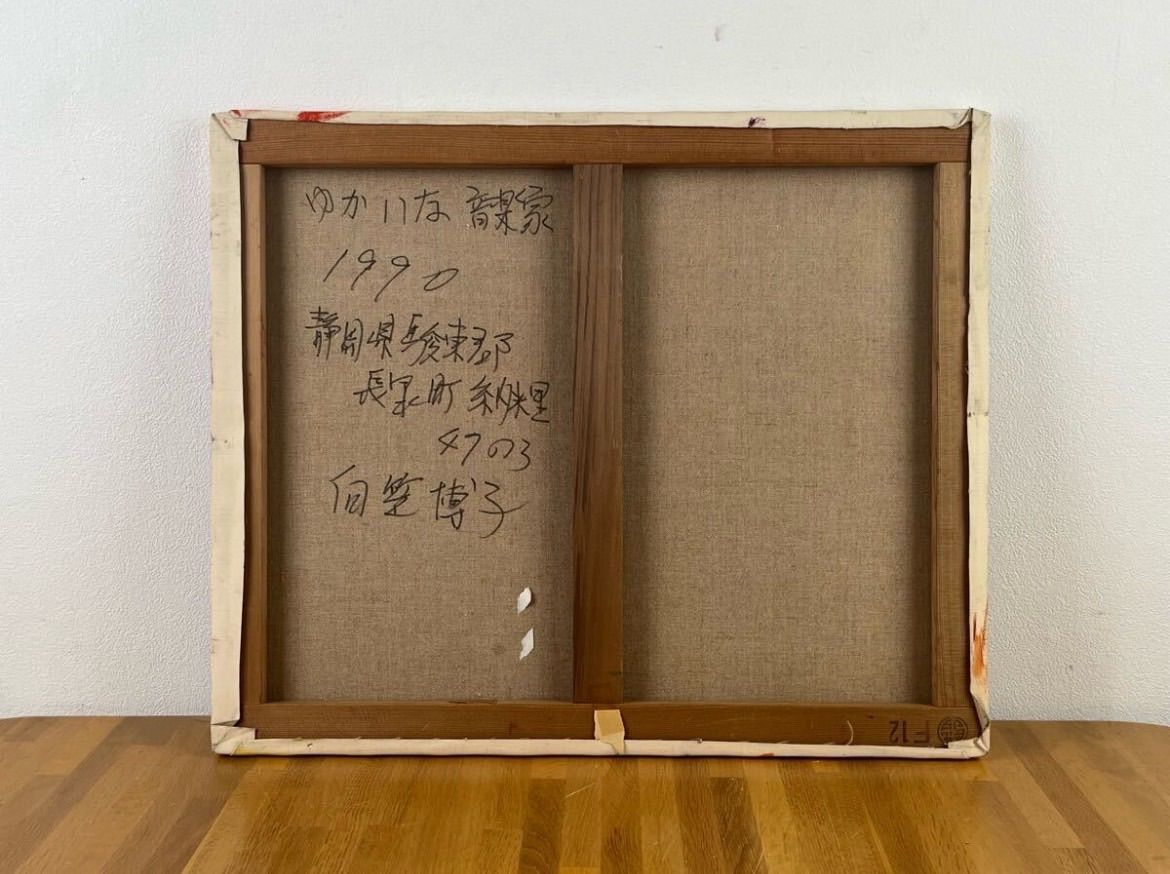 ゆかいな 音楽家
1990
静岡県駿東郡
長泉町納米里
47の3
向笠博子
F12